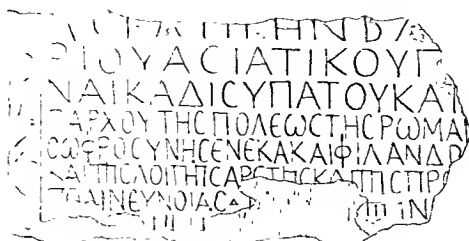 ΗΝΒ
ΡΙΟΥΑϹΙΑΤΙΚΟΥΓ
ΝΑΙΚΑΔΙϹΥΠΑΤΟΥΚΑΙ
ΠΑΡΧΟΥΤΗϹΠΟΛΕΩϹΤΗϹΡΩΜΑ
ϹΩΦΡΟϹΥΝΗϹΕΝΕΚΑΚΑΙΦΙΛΑΝΔΡ
ΚΑΙΤΗϹΛΟΙΠΗϹΑΡΕΤΗϹΚΑΙΤΗϹΠΡΟ
ΠΟΛΙΝΕΥΝΟΙΑϹ